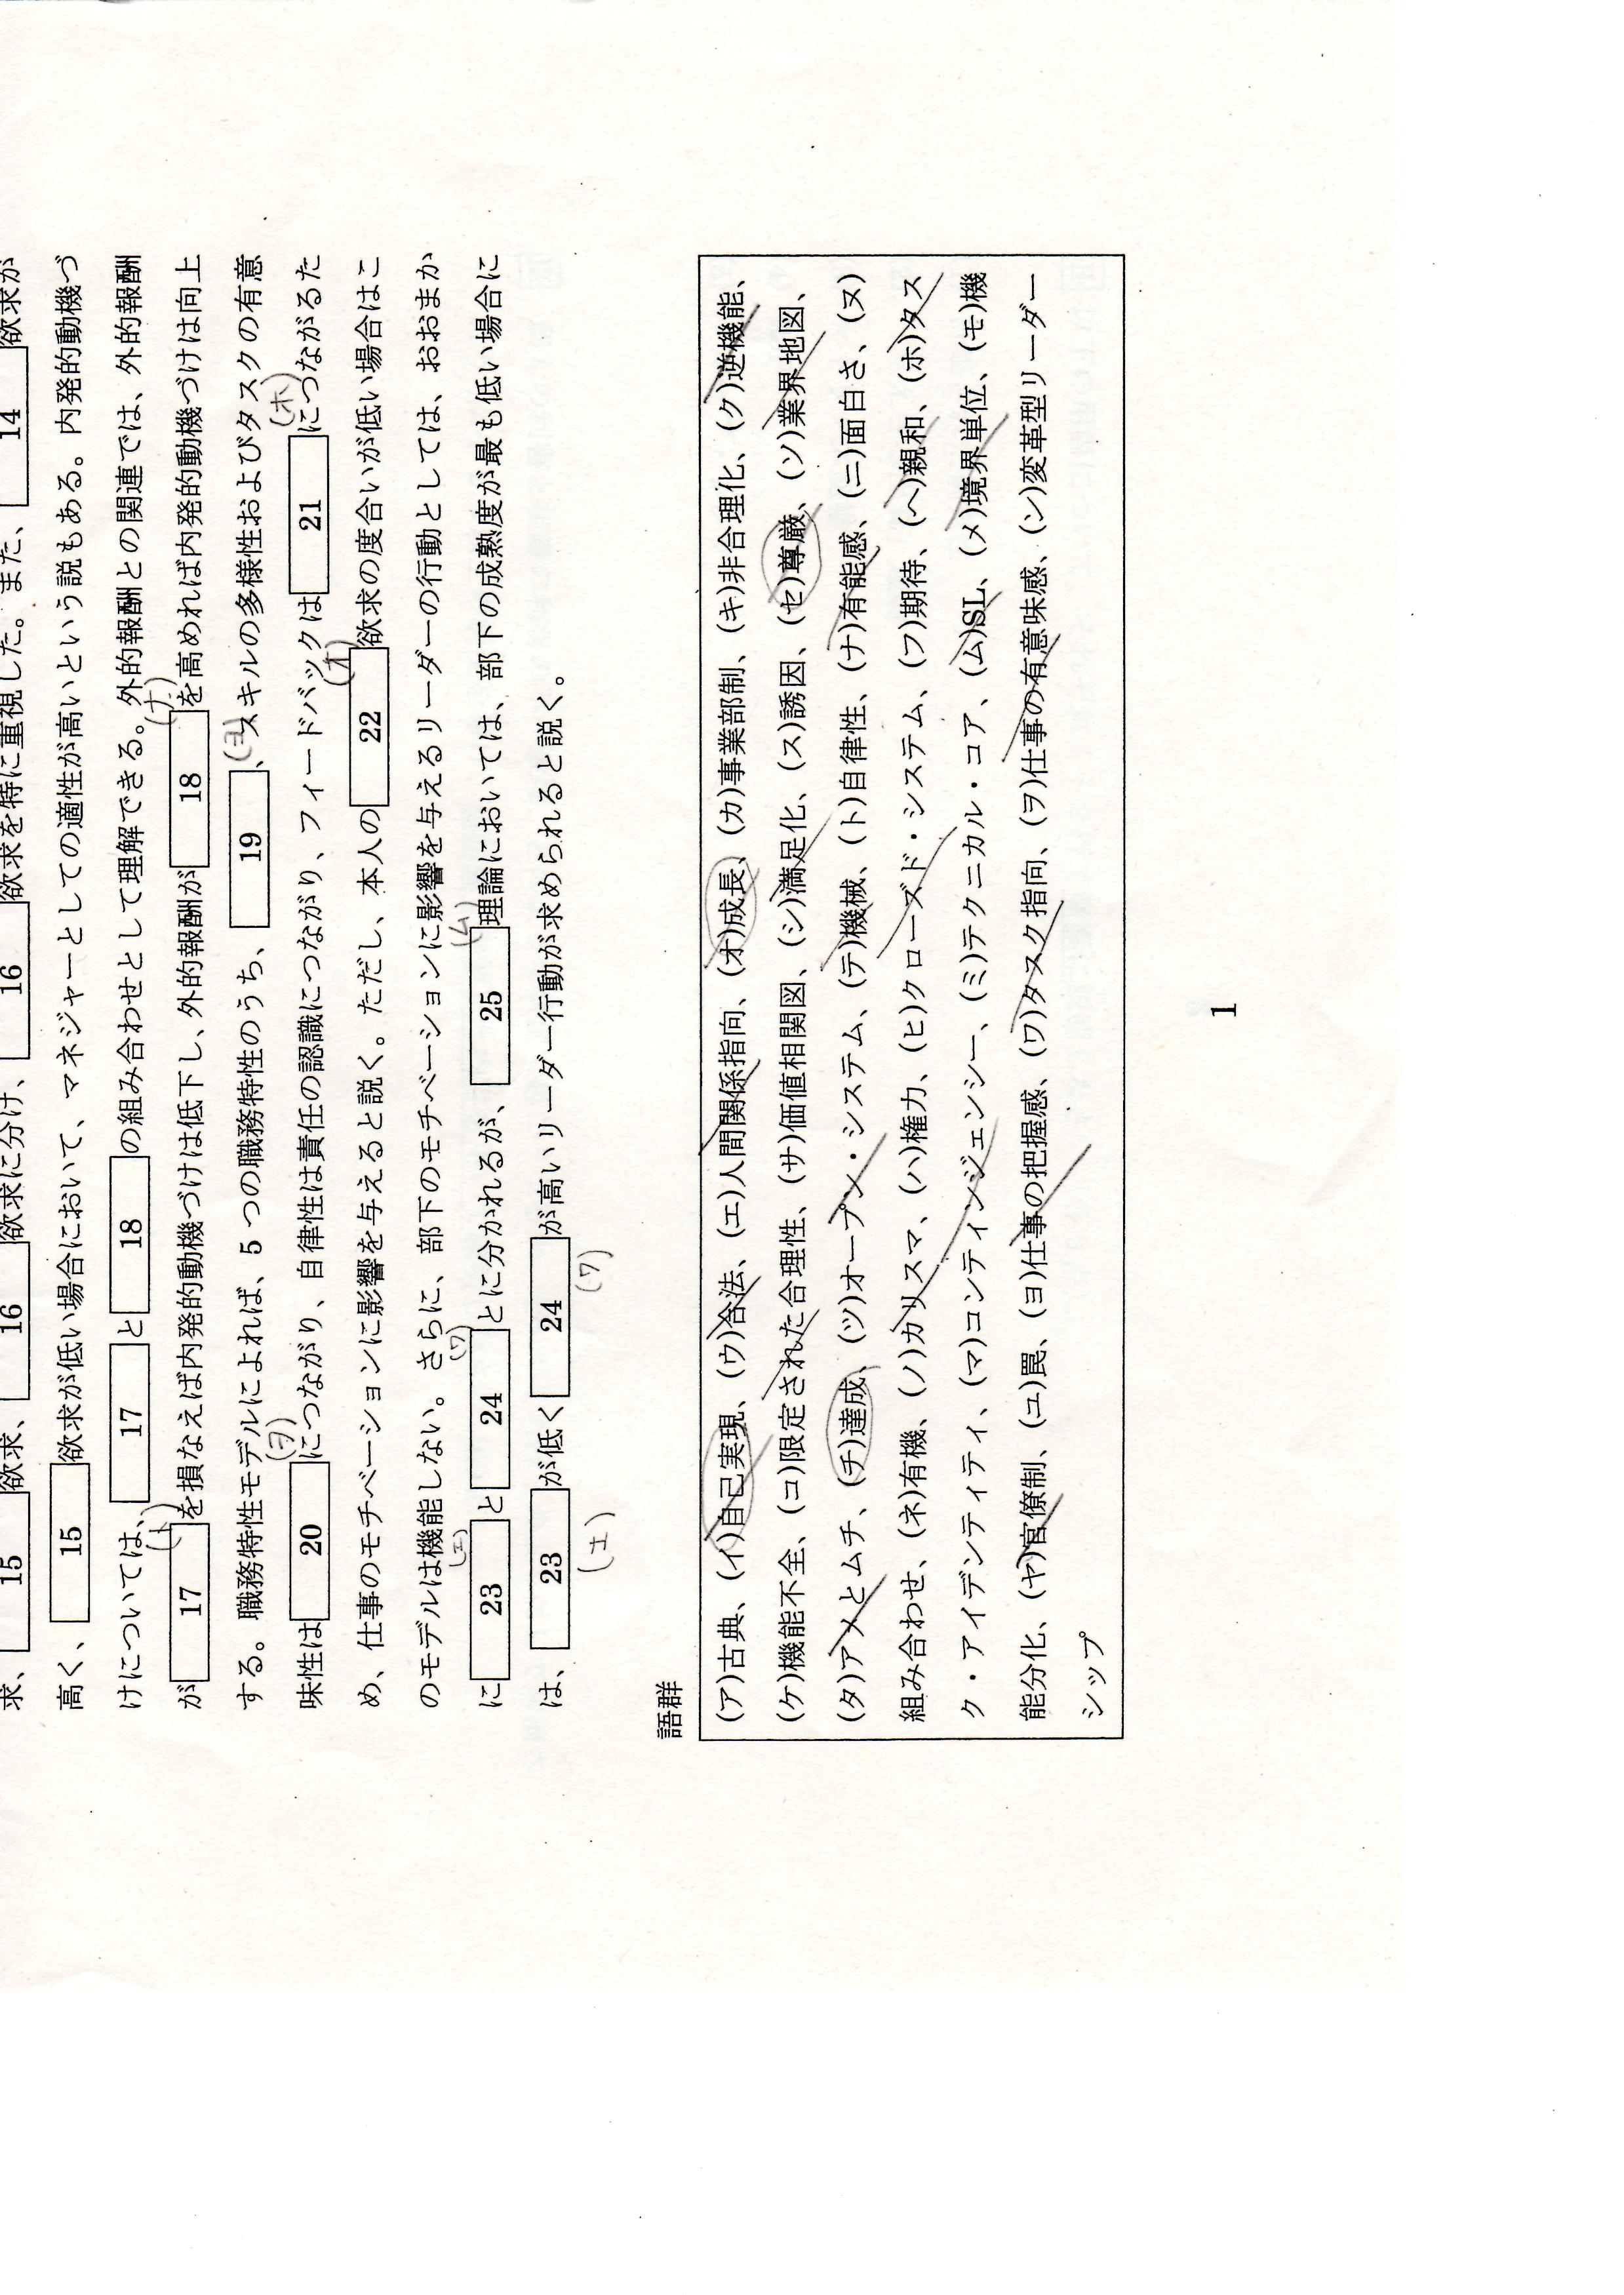 求、 15 欲求、 16 欲求に分け、 16 欲求を特に重視した。また、 14 欲求が
高く、 15 欲求が低い場合において、マネジャーとしての適性が高いという説もある。内発的動機づ
けについては、 17 と 18 の組み合わせとして理解できる。外的報酬との関連では、外的報酬
(ト) (ナ)
が 17 を損なえば内発的動機づけは低下し、外的報酬が 18 を高めれば内発的動機づけは向上
(ヨ)
する。職務特性モデルによれば、5 つの職務特性のうち、 19 、スキルの多様性およびタスクの有意
(ヲ) (ホ)
味性は 20 につながり、自律性は責任の認識につながり、フィードバックは 21 につながるた
(オ)
め、仕事のモチベーションに影響を与えると説く。ただし、本人の 22 欲求の度合いが低い場合はこ
のモデルは機能しない。さらに、部下のモチベーションに影響を与えるリーダーの行動としては、おおまか
(エ) (ワ) (ム)
に 23 と 24 とに分かれるが、 25 理論においては、部下の成熟度が最も低い場合に
は、 23 が低く 24 が高いリーダー行動が求められると説く。
(エ) (ワ)
語群
(ア)古典、(イ)自己実現、(ウ)合法、(エ)人間関係指向、(オ)成長、(カ)事業部制、(キ)非合理化、(ク)逆機能、
(ケ)機能不全、(コ)限定された合理性、(サ)価値相関図、(シ)満足化、(ス)誘因、(セ)尊厳、(ソ)業界地図、
(タ)アメとムチ、(チ)達成、(ツ)オープン・システム、(テ)機械、(ト)自律性、(ナ)有能感、(ニ)面白さ、(ヌ)
組み合わせ、(ネ)有機、(ノ)カリスマ、(ハ)権力、(ヒ)クローズド・システム、(フ)期待、(ヘ)親和、(ホ)タス
ク・アイデンティティ、(マ)コンティンジェンシー、(ミ)テクニカル・コア、(ム)SL、(メ)境界単位、(モ)機
能分化、(ヤ)官僚制、(ユ)罠、(ヨ)仕事の把握感、(ワ)タスク指向、(ヲ)仕事の有意味感、(ン)変革型リーダー
シップ
1